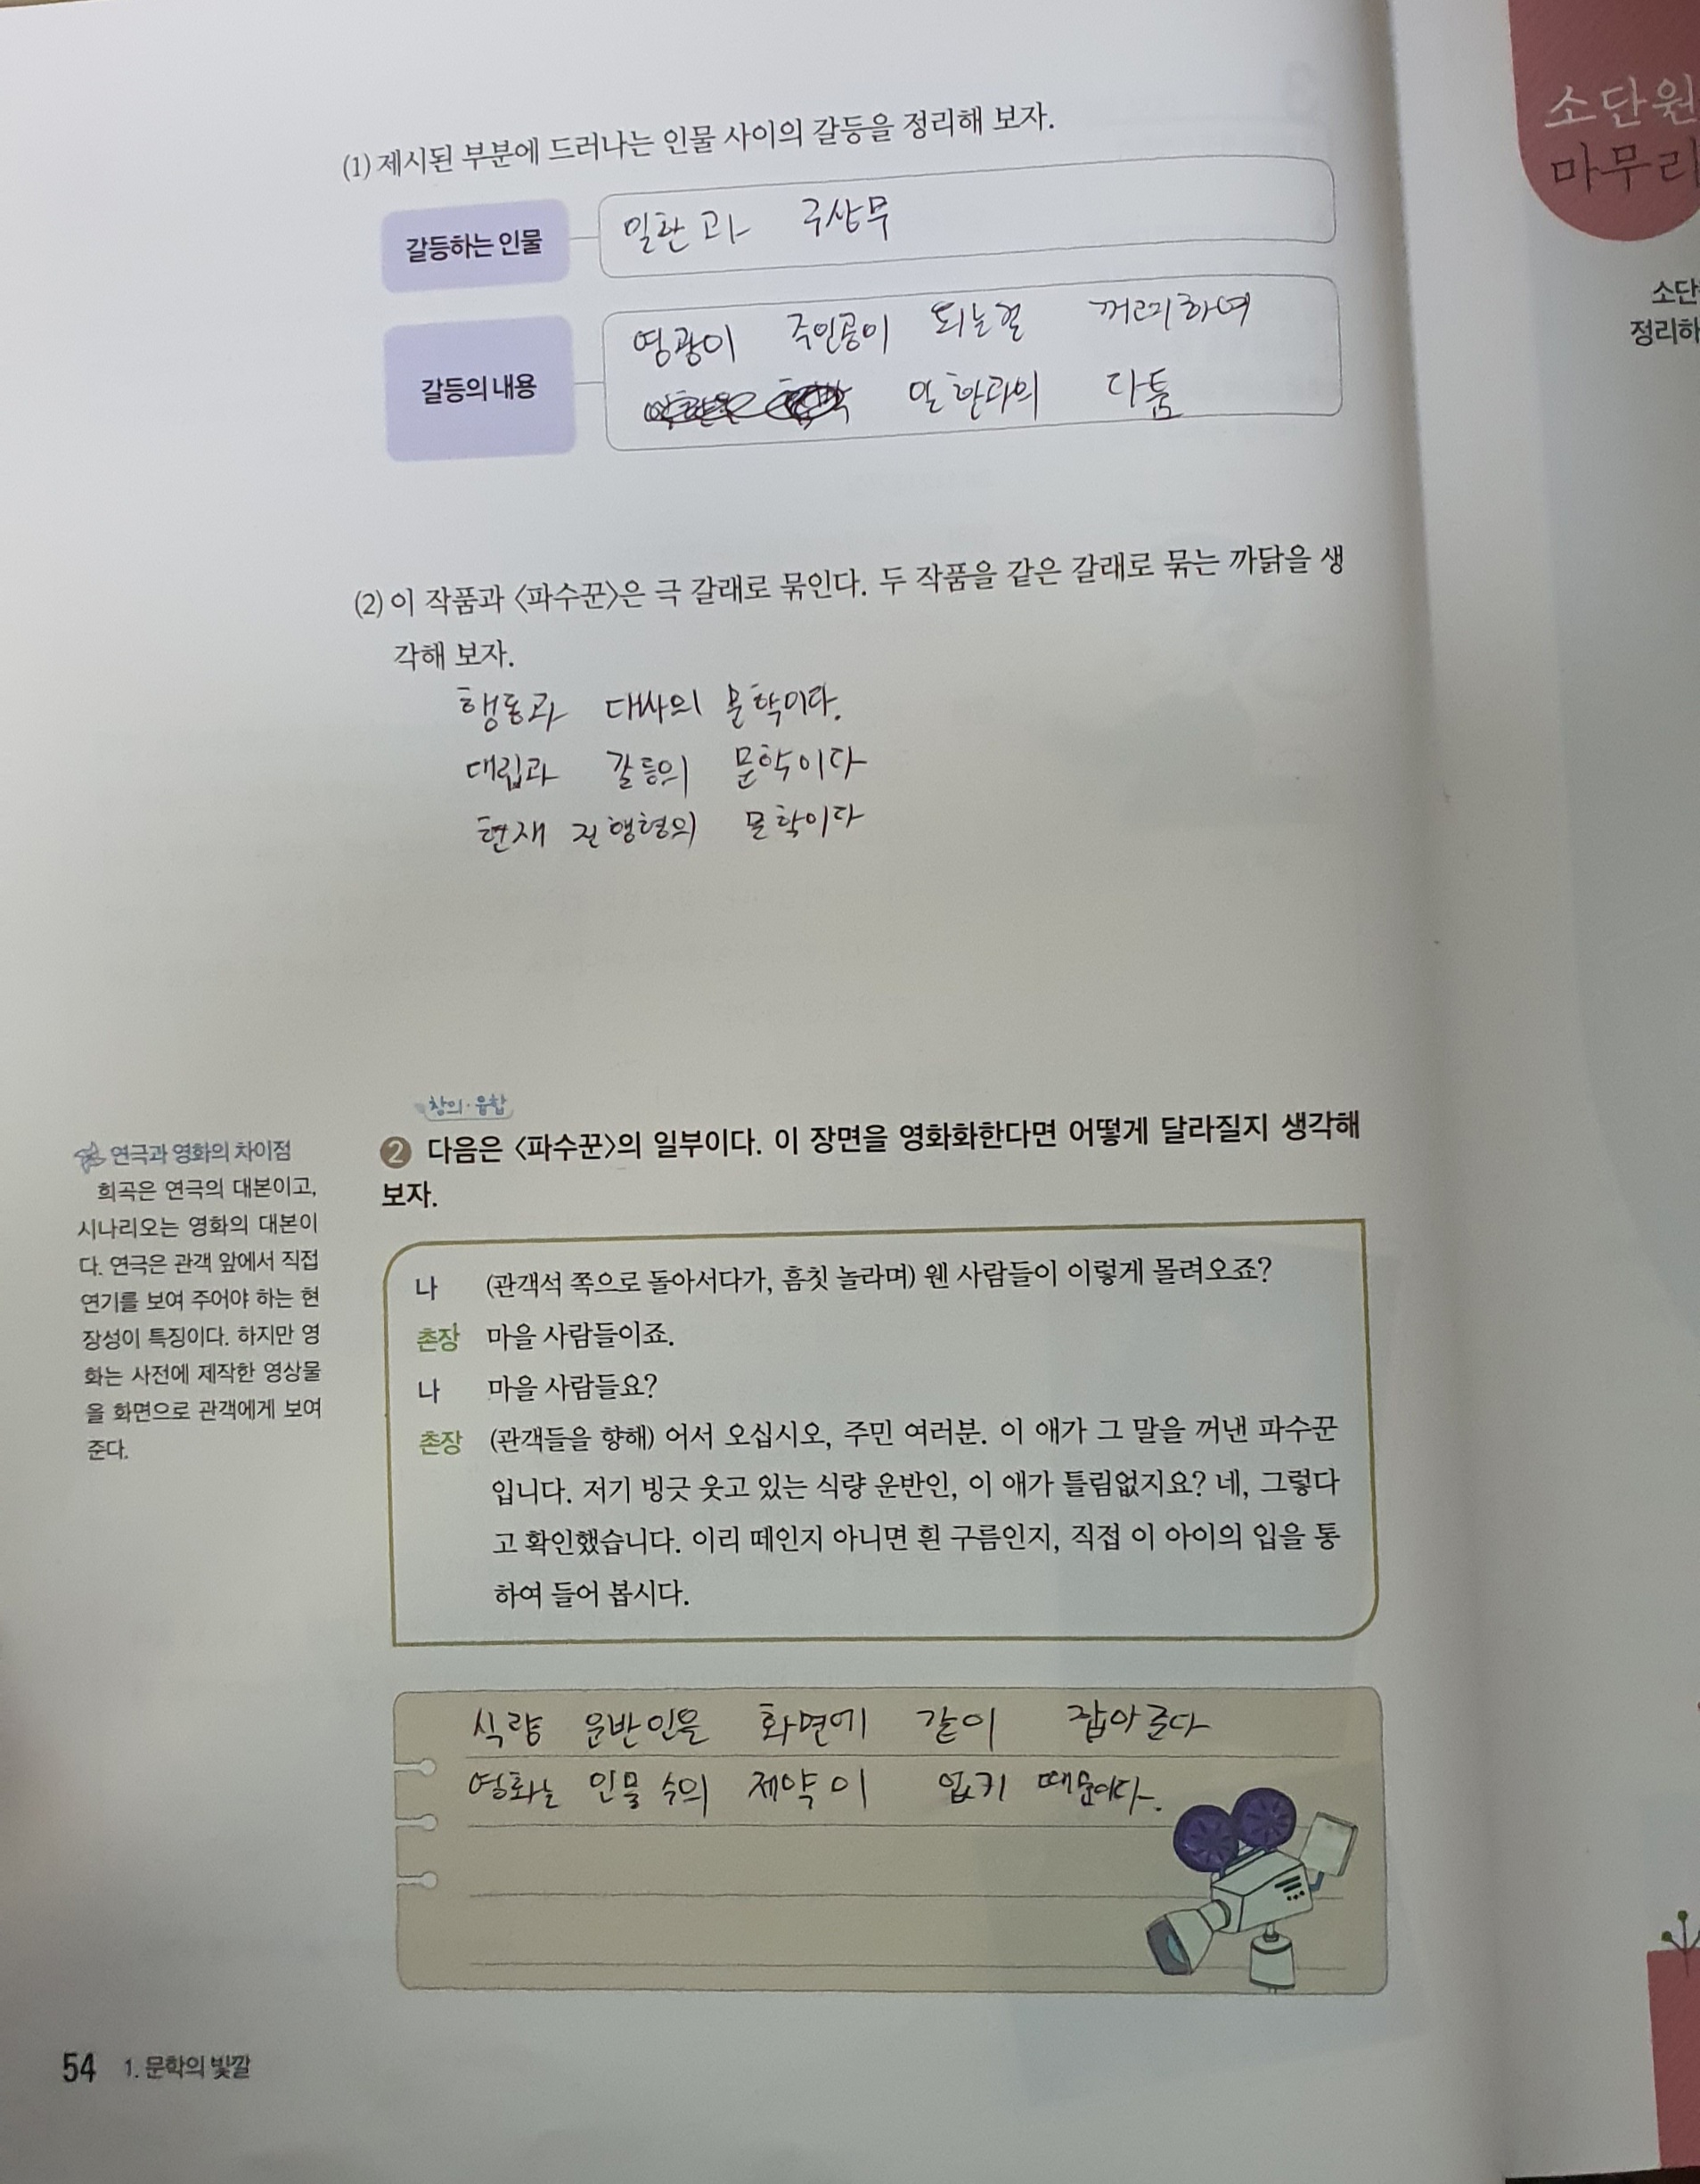 (1) 제시된 부분에 드러나는 인물 사이의 갈등을 정리해 보자.
갈등하는 인물
일한과 주상무
갈등의 내용
영광이 주인공이 되는걸 꺼려하여
일한과의 다툼
(2) 이 작품과 〈파수꾼〉은 극 갈래로 묶인다. 두 작품을 같은 갈래로 묶는 까닭을 생
각해 보자.
행동과 대사의 문학이다.
대립과 갈등의 문학이다
현재 진행형의 문학이다
창의·융합
2 다음은 〈파수꾼〉의 일부이다. 이 장면을 영화화한다면 어떻게 달라질지 생각해
보자.
연극과 영화의 차이점
희곡은 연극의 대본이고,
시나리오는 영화의 대본이
다. 연극은 관객 앞에서 직접
연기를 보여 주어야 하는 현
장성이 특징이다. 하지만 영
화는 사전에 제작한 영상물
을 화면으로 관객에게 보여
준다.
나 (관객석 쪽으로 돌아서다가, 흠칫 놀라며) 웬 사람들이 이렇게 몰려오죠?
촌장 마을 사람들이죠.
나 마을 사람들요?
촌장 (관객들을 향해) 어서 오십시오, 주민 여러분. 이 애가 그 말을 꺼낸 파수꾼
입니다. 저기 빙긋 웃고 있는 식량 운반인, 이 애가 틀림없지요? 네, 그렇다
고 확인했습니다. 이리 떼인지 아니면 흰 구름인지, 직접 이 아이의 입을 통
하여 들어 봅시다.
식량 운반인을 화면에 같이 잡아준다
영화는 인물 수의 제약이 없기 때문이다.
54 1. 문학의 빛깔
소단원
마무리
소단
정리하